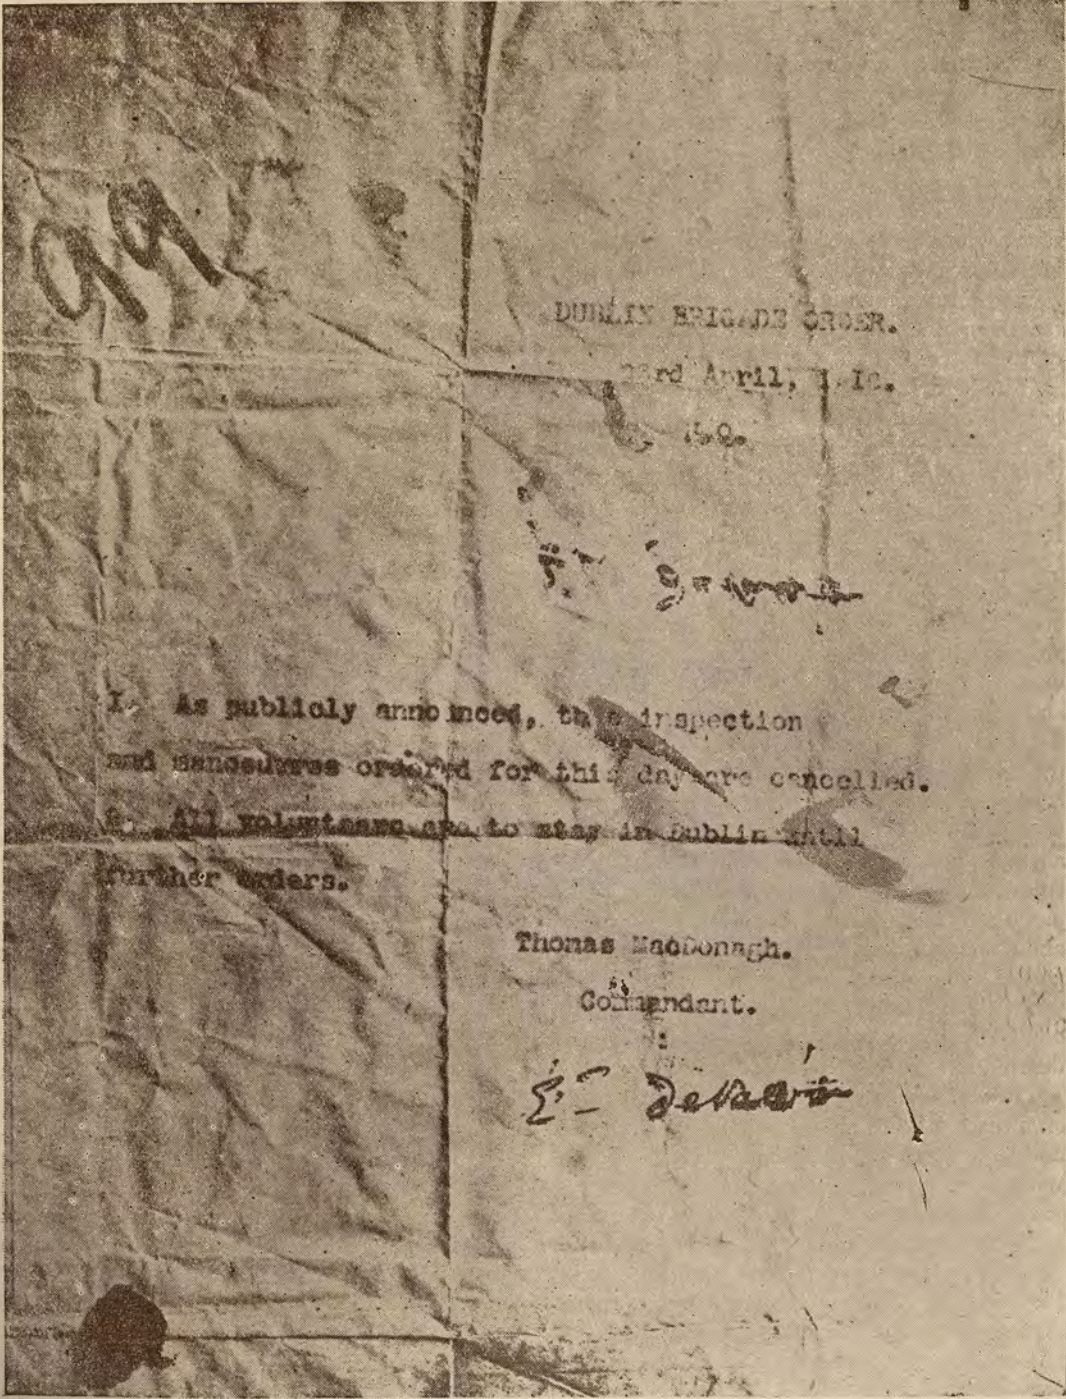 99
DUBLIN BRIGADE ORDER.
23rd April,
I. As publicly announced, the inspection
and manoeuvres ordered for this day are cancelled.
2. All volunteers are to stay in Dublin until
further orders.
Thomas MacDonagh.
Commandant.